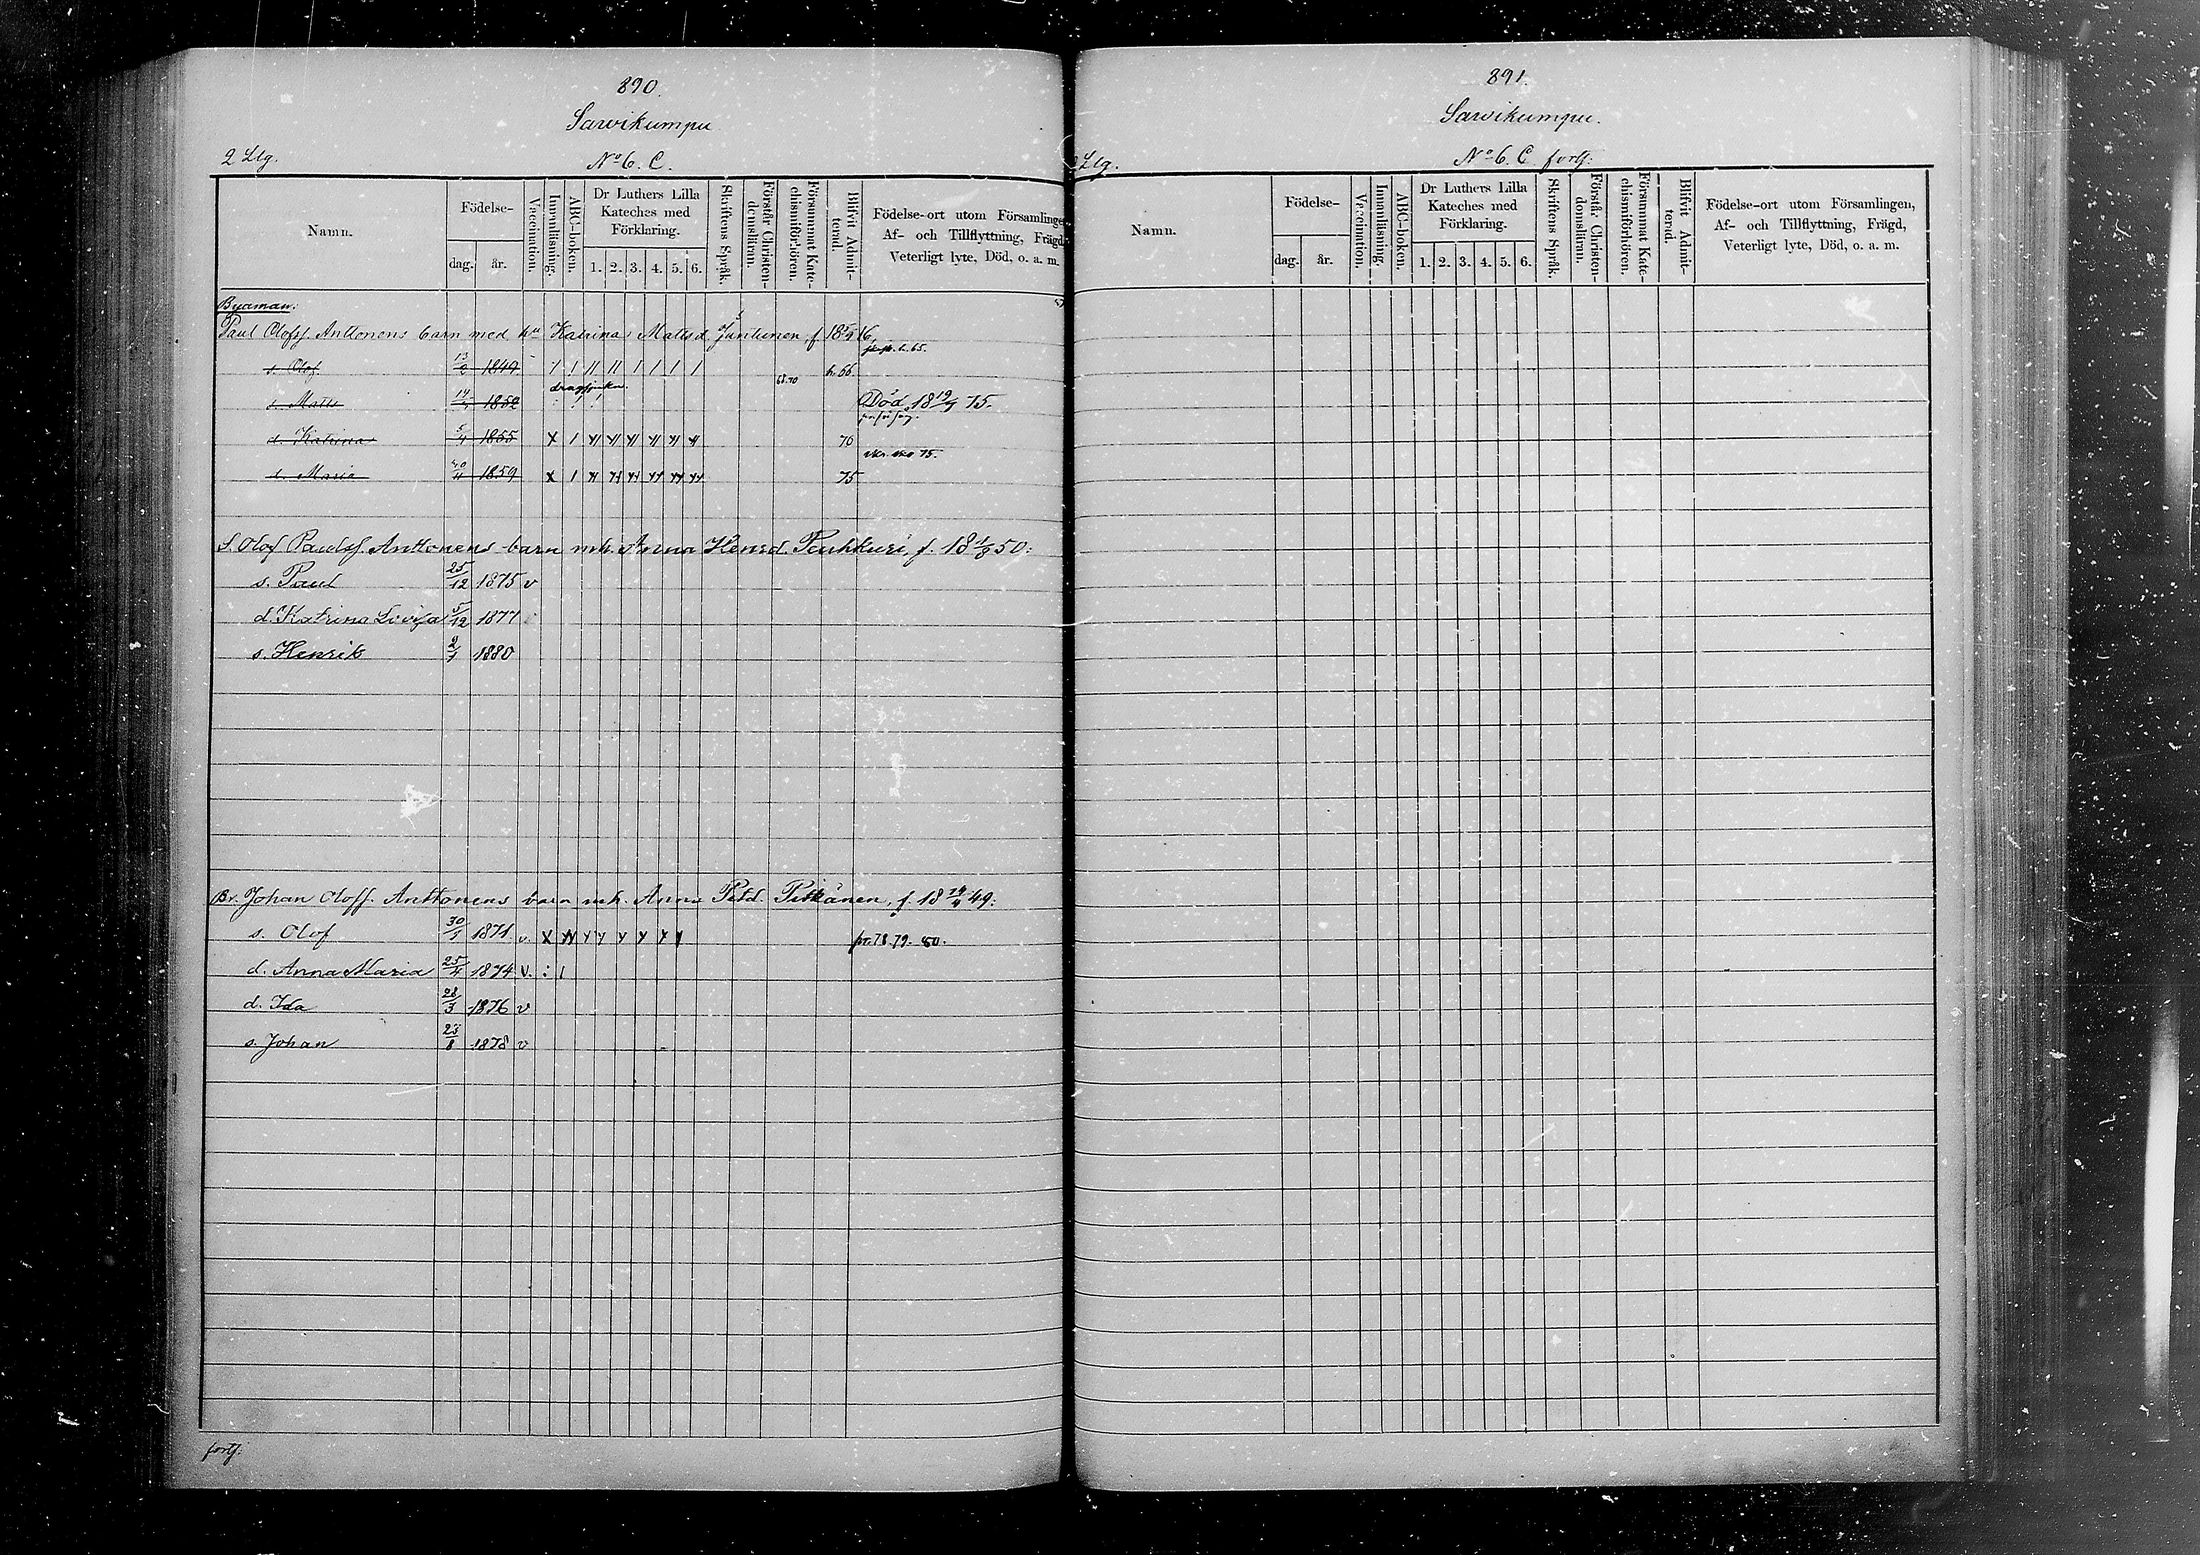 890.
Sarvikumpu
2 Llg.
No 6. C.
Namn.
Födelse-
dag.
år.
Vaccination.
Innanläsning.
ABC-boken.
Dr Luthers Lilla
Kateches med
Förklaring.
1. 2. 3. 4. 5. 6.
Skriftens Språk.
Förstår Christen-
domsläran.
Försummat Kate-
chismiförhören.
Blifvit Admit-
terad.
Födelse-ort utom Församlingen
Af- och Tillflyttning, Frägd
Veterligt lyte, Död, o. a. m.
Byaman:
Paul Olofss. Anttonens barn med hu Katrina Mattsd. Jantunen, f. 18 16.
s. Olof 13/2 1849 / / // // / / / / h. 66. l. 65.
s. Matts 14 1852 68.70 Död 18 19/9 75.
d. Katrina 5/4 1855 X / 70
d. Maria 1859 X / 75 75.
S. Olof Paulss. Anttonens barn mh. Anna Henrsd. Puhkuri, f. 18 1/3 50:
s. Paul 25/12 1875 v
d. Katrina Lovisa 5/12 1877
s. Henrik 2/1 1880
Br. Johan Olofs. Anttonens barn mh. Anna Petd. Pitkänen, f. 18 24/4 49:
s. Olof 30/5 1871 v. pr. 78. 79. 80.
d. Anna Maria 25/4 1874 v. : /
d. Ida 28/3 1876 v
s. Johan 23/8 1878 v
forts:
891.
Sarvikumpu.
2 Llg.
No 6. C forts:
Namn.
Födelse-
dag.
år.
Vaccination.
Innanläsning.
ABC-boken.
Dr Luthers Lilla
Kateches med
Förklaring.
1. 2. 3. 4. 5. 6.
Skriftens Språk.
Förstår Christen-
domsläran.
Försummat Kate-
chismiförhören.
Blifvit Admit-
terad.
Födelse-ort utom Församlingen,
Af- och Tillflyttning, Frägd,
Veterligt lyte, Död, o. a. m.